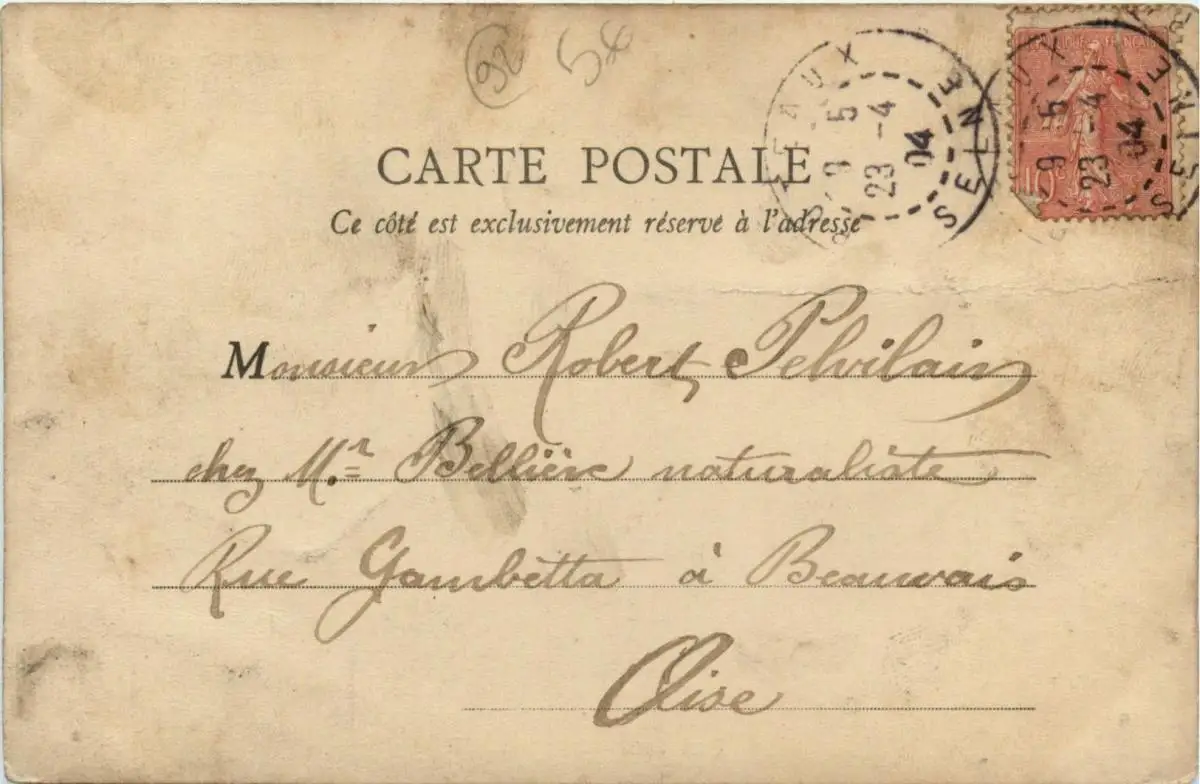 92
5€
CARTE POSTALE
Ce côté est exclusivement réservé à l'adresse
SCEAUX SEINE
9 5
23 -4
04
REPUBLIQUE FRANÇAISE
10c
SCEAUX SEINE
9 5
23 -4
04
Monsieur Robert Pelvilain
chez Mr. Bellière naturaliste
Rue Gambetta à Beauvais
Oise